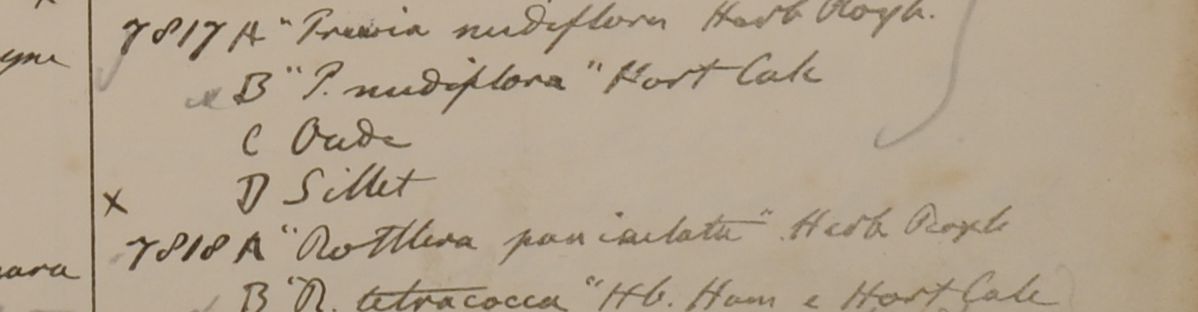 7817 A "Trewia nudiflora Herb Roxb.
B "T. nudiflora" Hort Calc
C Oude
x D Sillet
7818 A "Rottlera paniculata" Herb Roxb
B "R. tetracocca" Hb. Ham e Hort Calc